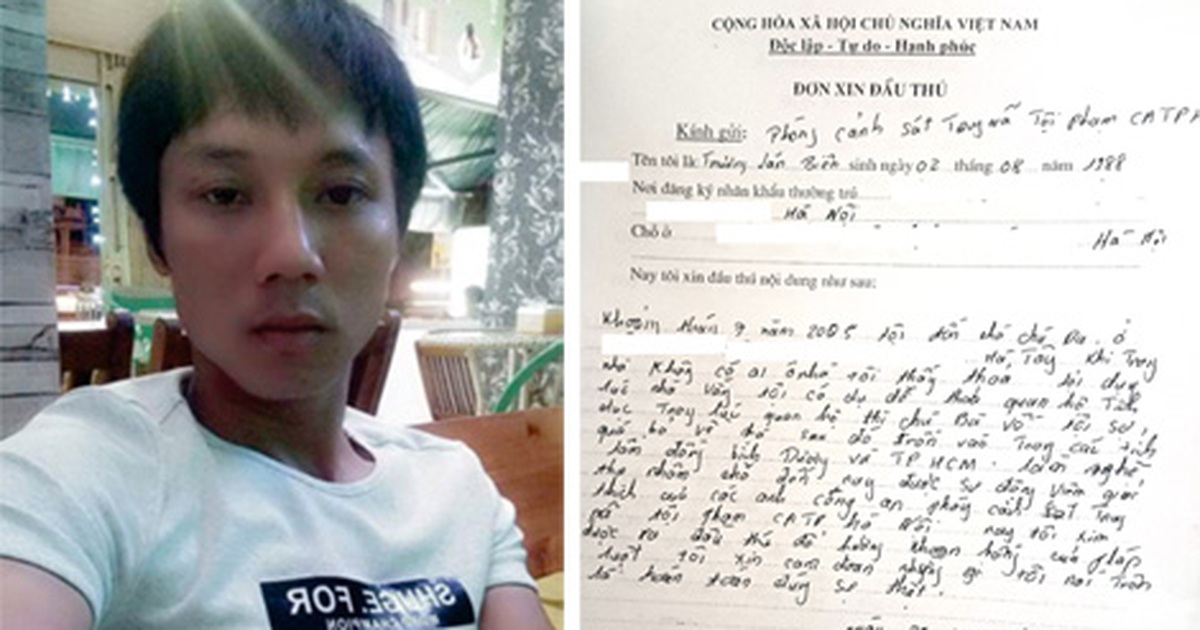 SHUGE.FOR
CHAMPION
CỘNG HÒA XÃ HỘI CHỦ NGHĨA VIỆT NAM
Độc lập - Tự do - Hạnh phúc
ĐƠN XIN ĐẦU THÚ
Kính gửi: Phòng cảnh sát Truy nã Tội phạm CATP
Tên tôi là: Trương Văn Biên sinh ngày 02 tháng 08 năm 1988
Nơi đăng ký nhân khẩu thường trú
Hà Nội
Chỗ ở
Hà Nội
Nay tôi xin đầu thú nội dung như sau:
Khoảng tháng 9 năm 2005 tôi đến nhà chú Ba ở
Hà Tây Khi Trong
nhà Không có ai ở nhà tôi thấy Thoa lợi dụng
lúc nhà vắng tôi có dụ dỗ quan hệ Tình
dục Trong lúc quan hệ thì chú Ba về tôi sợ,
quá bỏ về sau đó trốn vào Trong các tỉnh
Lâm đồng bình Dương và TP HCM. làm nghề
nay được sự động viên giải
thích của các anh công an phòng cảnh sát Truy
nã tội phạm CATP hà Nội nay tôi xin
được ra đầu thú để hưởng khoan hồng của pháp
luật tôi xin cam đoan những gì tôi nói Trên
là hoàn toàn đúng sự thật.